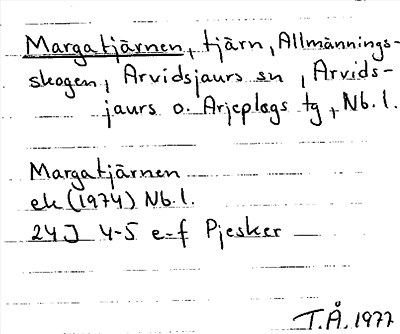 Margatjärnen, tjärn, Allmännings-
skogen, Arvidsjaurs sn, Arvids-
jaurs o. Arjeplogs tg, Nb.l.
Margatjärnen
ek (1974) Nb.l.
24J 4-5 e-f Pjesker
T.Å. 1977